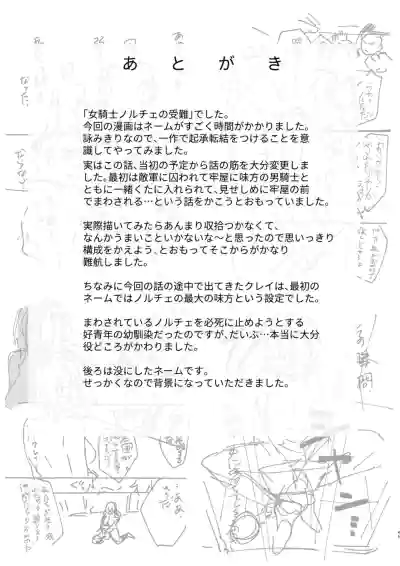 あとがき
「女騎士ノルチェの受難」でした。
今回の漫画はネームがすごく時間がかかりました。
詠みきりなので、一作で起承転結をつけることを意
識してやってみました。
実はこの話、当初の予定から話の筋を大分変更しま
した。最初は敵軍に囚われて牢屋に味方の男騎士と
ともに一緒くたに入れられて、見せしめに牢屋の前
でまわされる…という話をかこうとおもっていました。
実際描いてみたらあんまり収拾つかなくて、
なんかうまいこといかないな～と思ったので思いっきり
構成をかえよう、とおもってそこからがかなり
難航しました。
ちなみに今回の話の途中で出てきたクレイは、最初の
ネームではノルチェの最大の味方という設定でした。
まわされているノルチェを必死に止めようとする
好青年の幼馴染だったのですが、だいぶ…本当に大分
役どころがかわりました。
後ろは没にしたネームです。
せっかくなので背景になっていただきました。